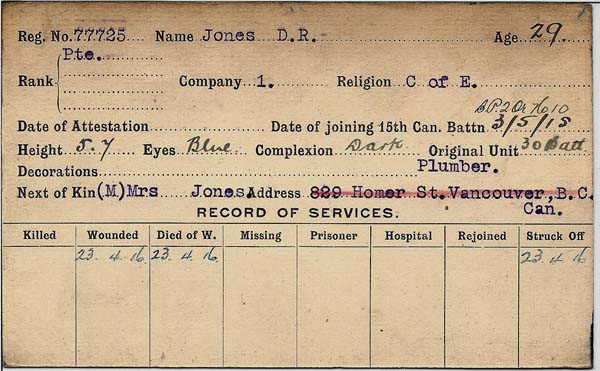 Reg. No. 77725 Name Jones D.R. Age 29
Pte.
Rank Company 1. Religion C of E.
B.P.2 Or No 10
Date of Attestation Date of joining 15th Can. Battn 3/5/15
Height 5.7 Eyes Blue Complexion Dark Original Unit 30 Batt
Decorations Plumber.
Next of Kin (M) Mrs Jones. Address 829 Homer St. Vancouver, B.C.
Can.
RECORD OF SERVICES.
Killed Wounded Died of W. Missing Prisoner Hospital Rejoined Struck Off
23. 4. 16 23. 4. 16. 23. 4. 16